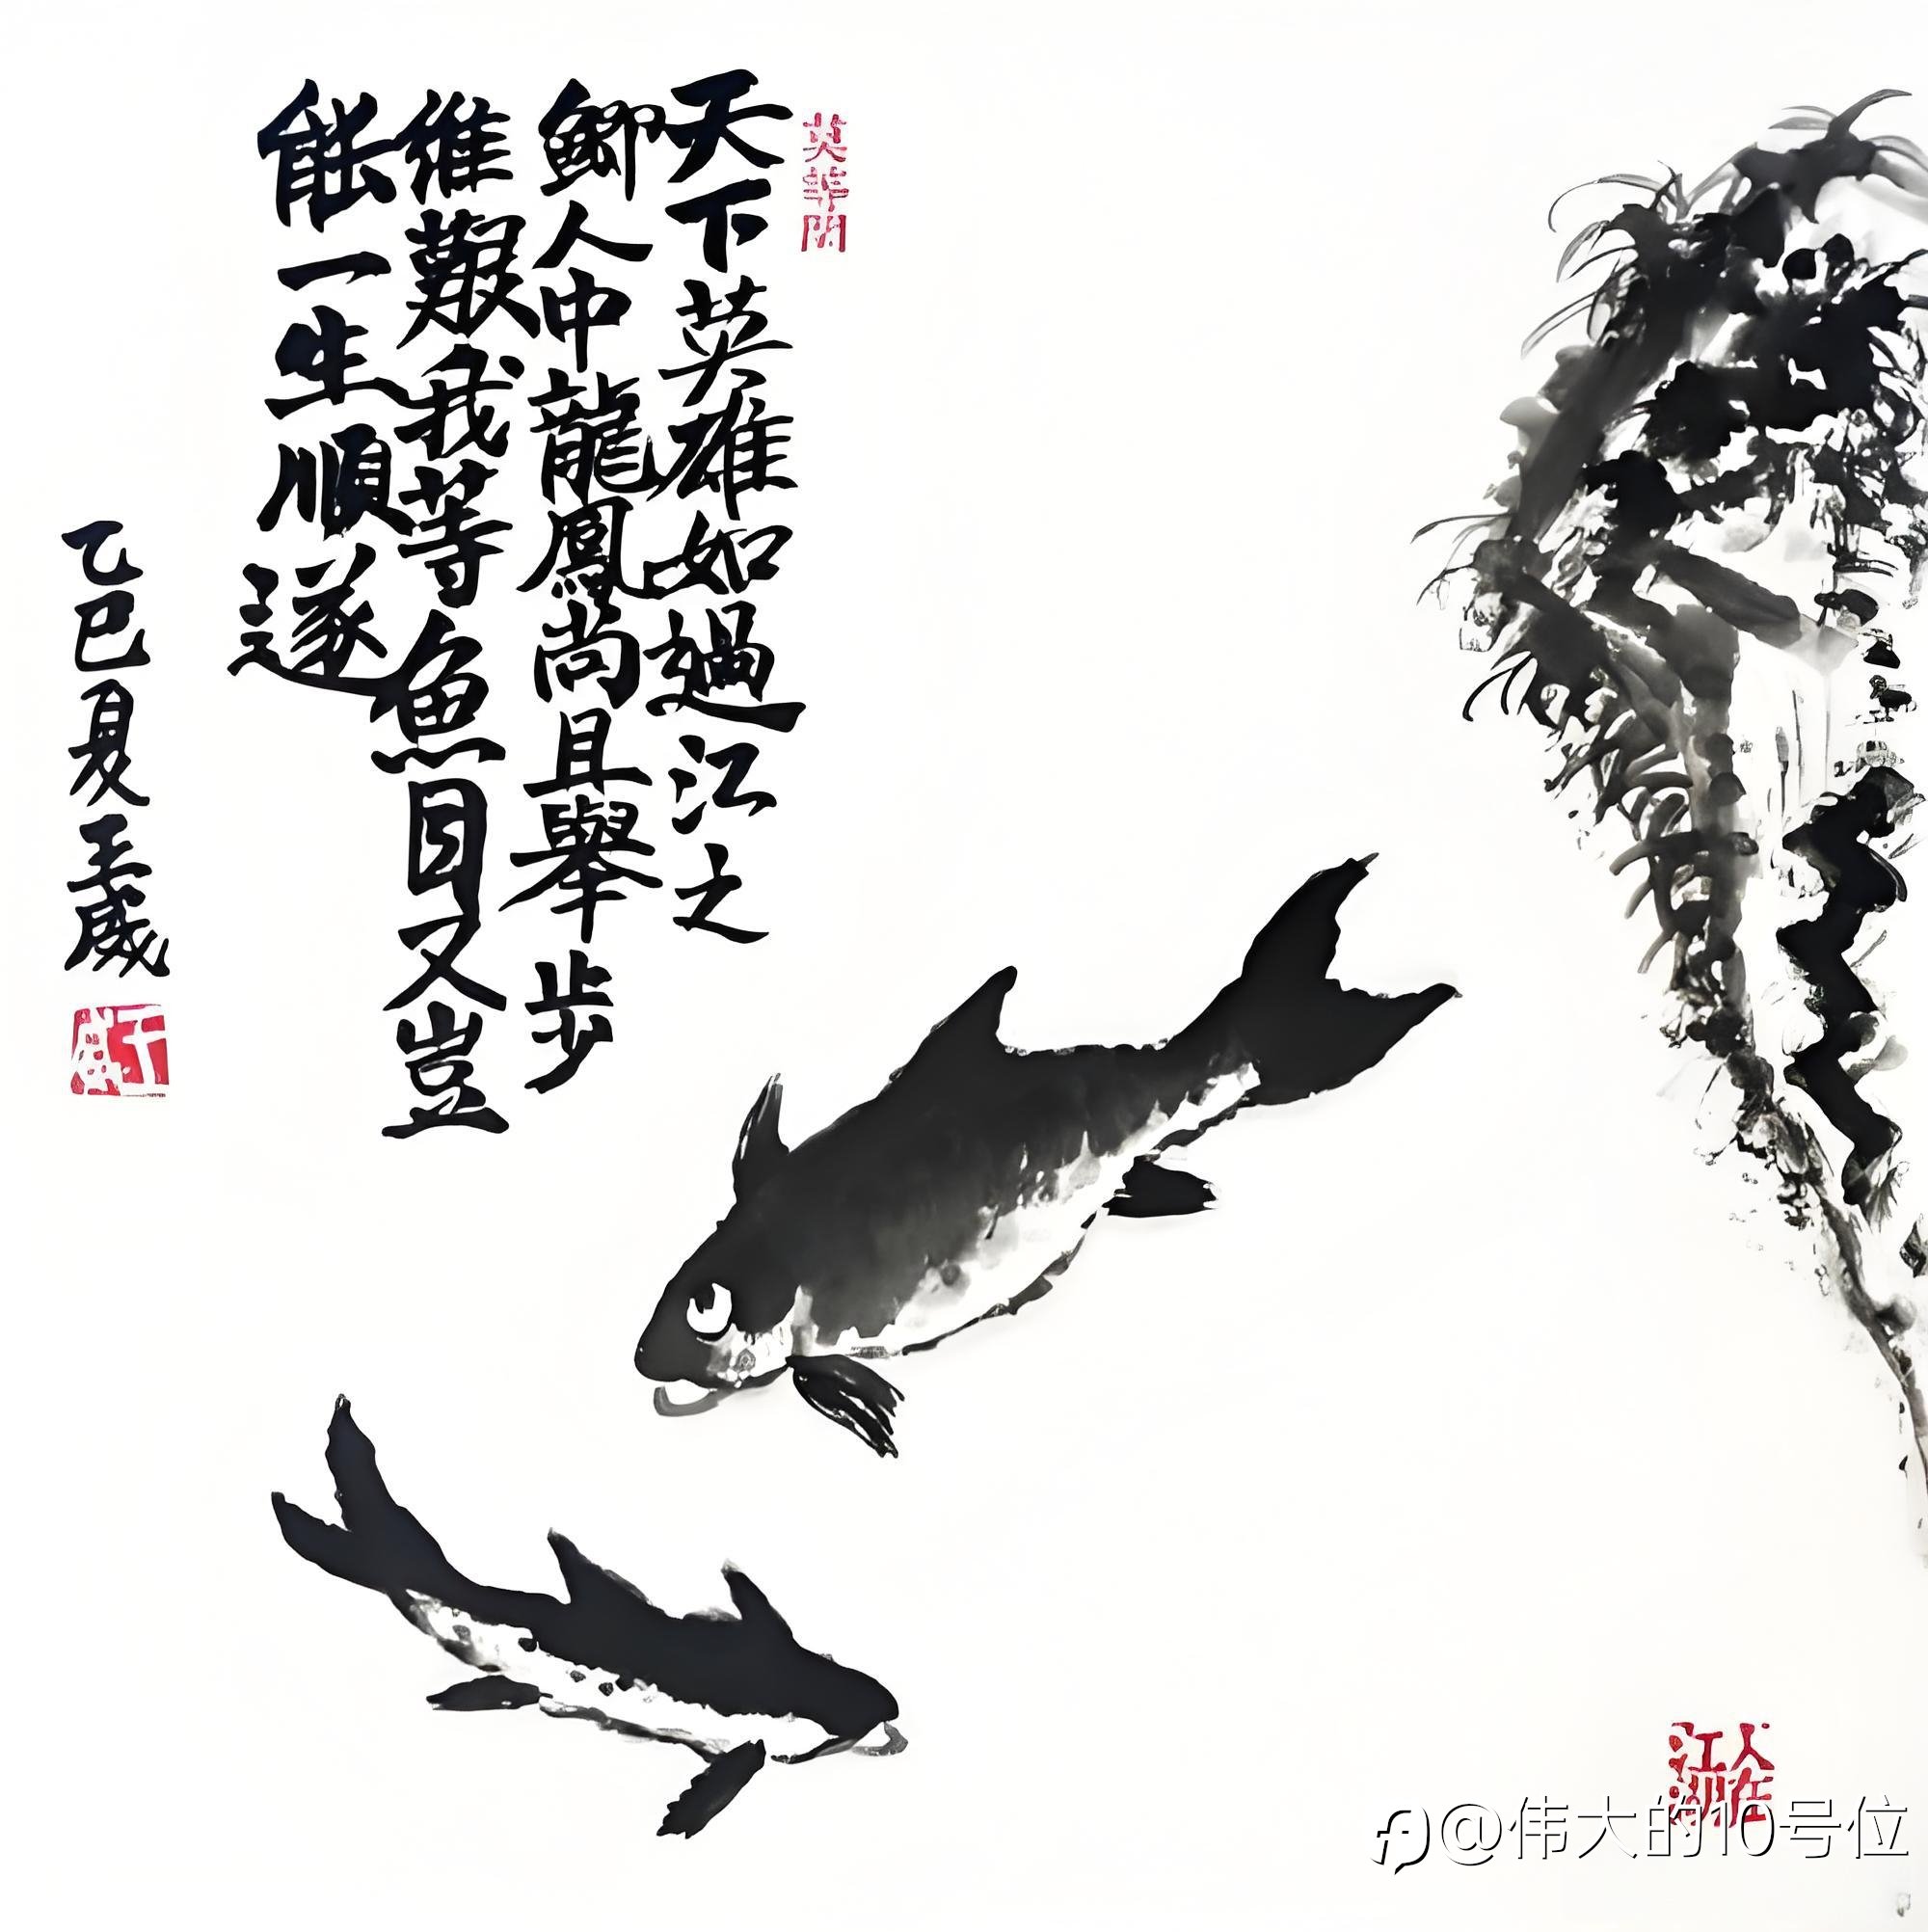 天下英雄如過江之
鯽人中龍鳳尚且舉步
維艱我等魚目又豈
能一生順遂
乙巳夏王威
人在
江湖
@伟大的10号位